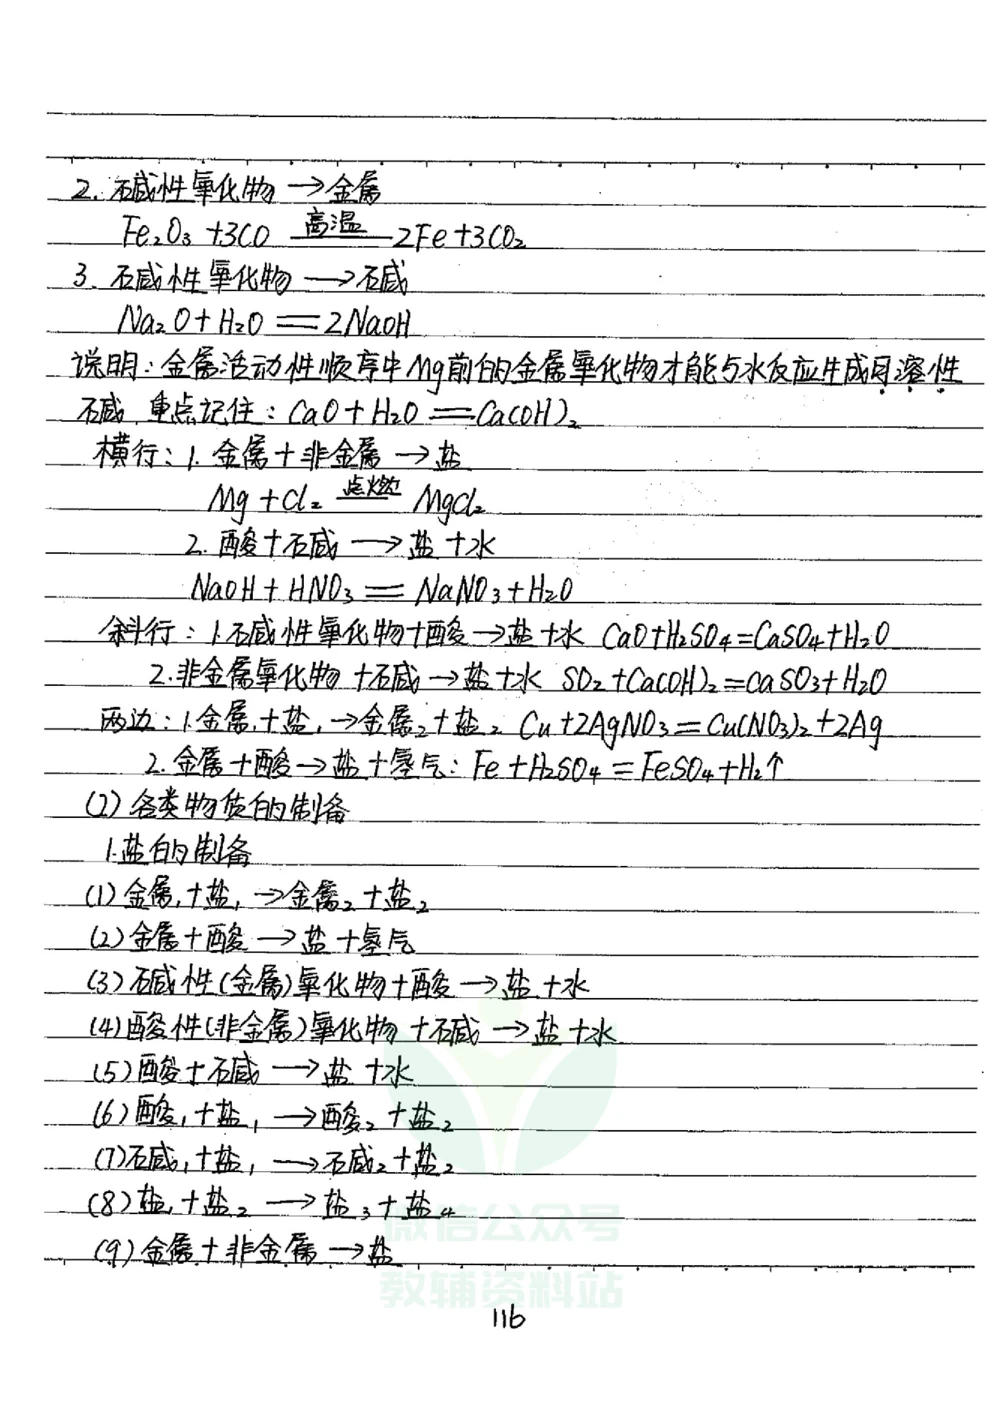 2. 碱性氧化物 → 金属
Fe₂O₃ + 3CO 高温 2Fe + 3CO₂
3. 碱性氧化物 → 碱
Na₂O + H₂O = 2NaOH
说明：金属活动性顺序中Mg前的金属氧化物才能与水反应生成可溶性
碱，重点记住：CaO + H₂O = Ca(OH)₂
横行：1. 金属 + 非金属 → 盐
Mg + Cl₂ 点燃 MgCl₂
2. 酸 + 碱 → 盐 + 水
NaOH + HNO₃ = NaNO₃ + H₂O
斜行：1. 碱性氧化物 + 酸 → 盐 + 水 CaO + H₂SO₄ = CaSO₄ + H₂O
2. 非金属氧化物 + 碱 → 盐 + 水 SO₂ + Ca(OH)₂ = CaSO₃ + H₂O
两边：1. 金属₁ + 盐₁ → 金属₂ + 盐₂ Cu + 2AgNO₃ = Cu(NO₃)₂ + 2Ag
2. 金属 + 酸 → 盐 + 氢气：Fe + H₂SO₄ = FeSO₄ + H₂↑
(2) 各类物质的制备
1. 盐的制备
(1) 金属₁ + 盐₁ → 金属₂ + 盐₂
(2) 金属 + 酸 → 盐 + 氢气
(3) 碱性(金属)氧化物 + 酸 → 盐 + 水
(4) 酸性(非金属)氧化物 + 碱 → 盐 + 水
(5) 酸 + 碱 → 盐 + 水
(6) 酸₁ + 盐₁ → 酸₂ + 盐₂
(7) 碱₁ + 盐₁ → 碱₂ + 盐₂
(8) 盐₁ + 盐₂ → 盐₃ + 盐₄
微信公众号
(9) 金属 + 非金属 → 盐
教辅资料站
116